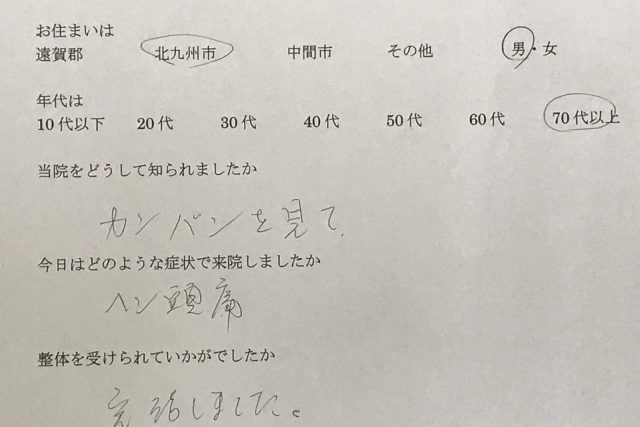 お住まいは
遠賀郡 北九州市 中間市 その他 男・女
年代は
10代以下 20代 30代 40代 50代 60代 70代以上
当院をどうして知られましたか
カンバンを見て
今日はどのような症状で来院しましたか
ヘン頭痛
整体を受けられていかがでしたか
しました。